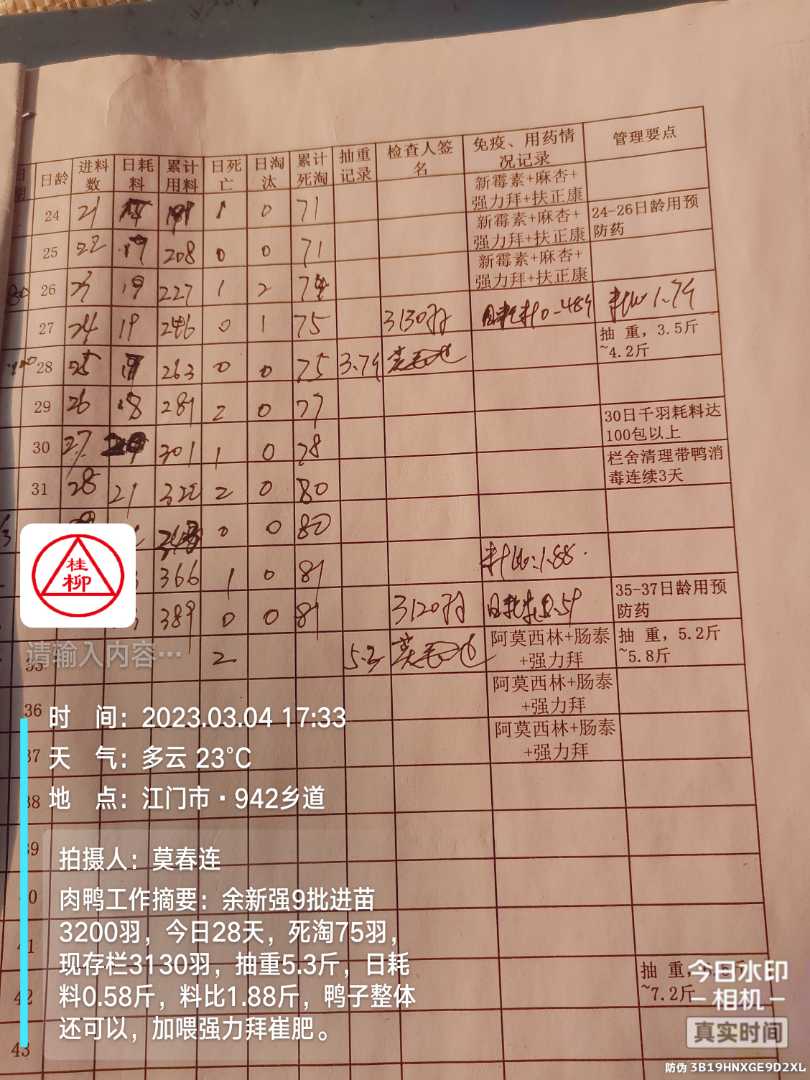 日龄 进料数 日耗料 累计用料 日死亡 日淘汰 累计死淘 抽重记录 检查人签名 免疫、用药情况记录 管理要点
24 21 1 0 71 新霉素+麻杏+强力拜+扶正康
25 22 19 208 0 0 71 新霉素+麻杏+强力拜+扶正康 24-26日龄用预防药
26 23 19 227 1 2 74 新霉素+麻杏+强力拜+扶正康
27 24 19 246 0 1 75 3130羽 日耗料0.48斤 料比1.79
28 25 263 0 0 75 3.7斤 抽重，3.5斤~4.2斤
29 26 18 281 2 0 77
30 27 301 1 0 78 30日千羽耗料达100包以上
31 28 21 322 2 0 80 栏舍清理带鸭消毒连续3天
0 0 80
366 1 0 81 料比:1.88.
389 0 0 81 3120羽 35-37日龄用预防药
35 2 5.3 阿莫西林+肠泰+强力拜 抽重，5.2斤~5.8斤
36 阿莫西林+肠泰+强力拜
37 阿莫西林+肠泰+强力拜
38
39
40
41
42 抽重，
~7.2斤
43
桂
柳
请输入内容…
时 间：2023.03.04 17:33
天 气：多云 23℃
地 点：江门市·942乡道
拍摄人：莫春连
肉鸭工作摘要：余新强9批进苗
3200羽，今日28天，死淘75羽，
现存栏3130羽，抽重5.3斤，日耗
料0.58斤，料比1.88斤，鸭子整体
还可以，加喂强力拜崔肥。
今日水印
相机
真实时间
防伪 3B19HNXGE9D2XL